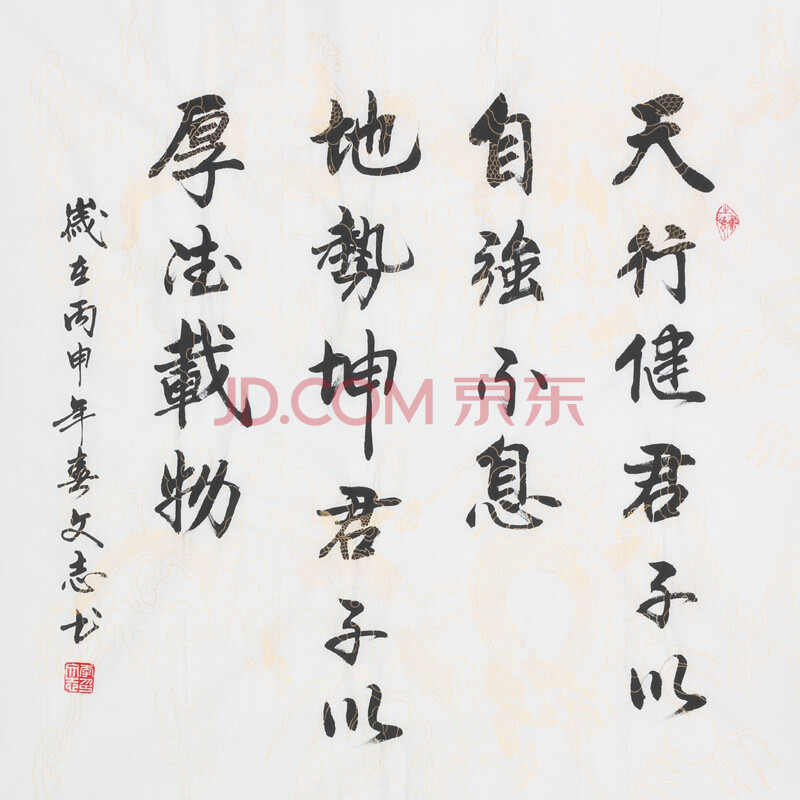 天行健君子以
自強不息
地勢坤君子以
厚德載物
歲在丙申年春文志书
JD.COM 京东